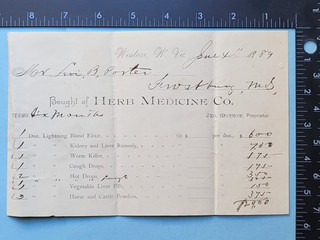 Weston, W. Va. June 4" 1889
Mr Levi B. Porter
Frostburg, Md,
Bought of HERB MEDICINE CO.
TERMS Six Months Proprietor
1 Doz. Lightning Blood Elixir. @ $ per doz. $ 600
1 " " Kidney and Liver Remedy. " "
1 " " Worm Killer. " " 175
1 " " Cough Drops. " " 175
2 " " Hot Drops. " "
1 " " Vegetable Liver Pills. " " 100
2 " " Horse and Cattle Powders. " " 375